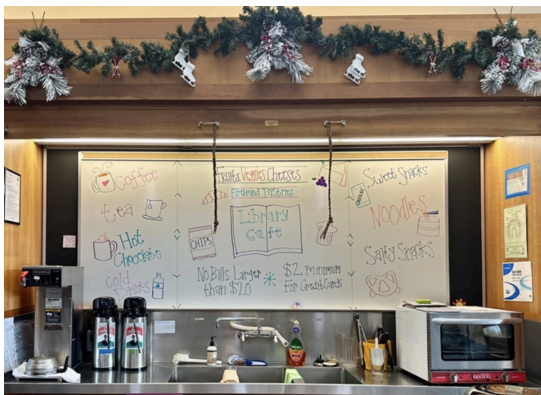 Coffee
tea
Hot
Chocolate
cold
Drinks
Fruits Veggies Cheeses
Bread and Pastries
Library
Cafe
CHIPS
No Bills Larger
than $20
$2 minimum
For Credit Cards
Sweet Snacks
Noodles
Salty Snacks